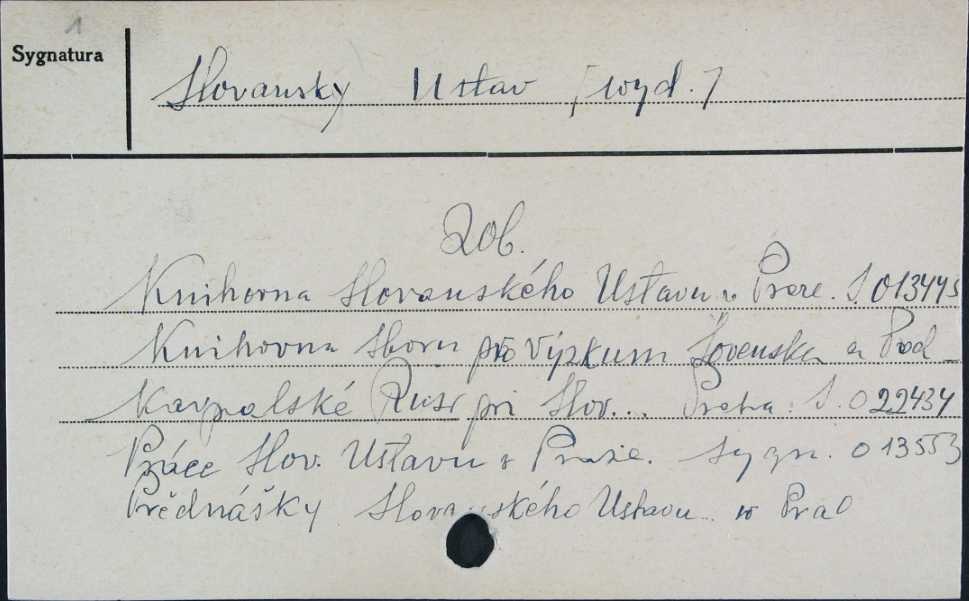 1
Sygnatura
Slovansky Ustav [wyd.]
Zob.
Knihovna Slovanského Ustavu v Praze. S. 013445
Knihovna Sboru pro Výzkum Slovenska a Pod
Karpatské Rusi pri Slov... Praha. S. 022434
Práce Slov. Ustavu v Praze. Sygn. 013553
Přednášky Slovanského Ustavu w Pra